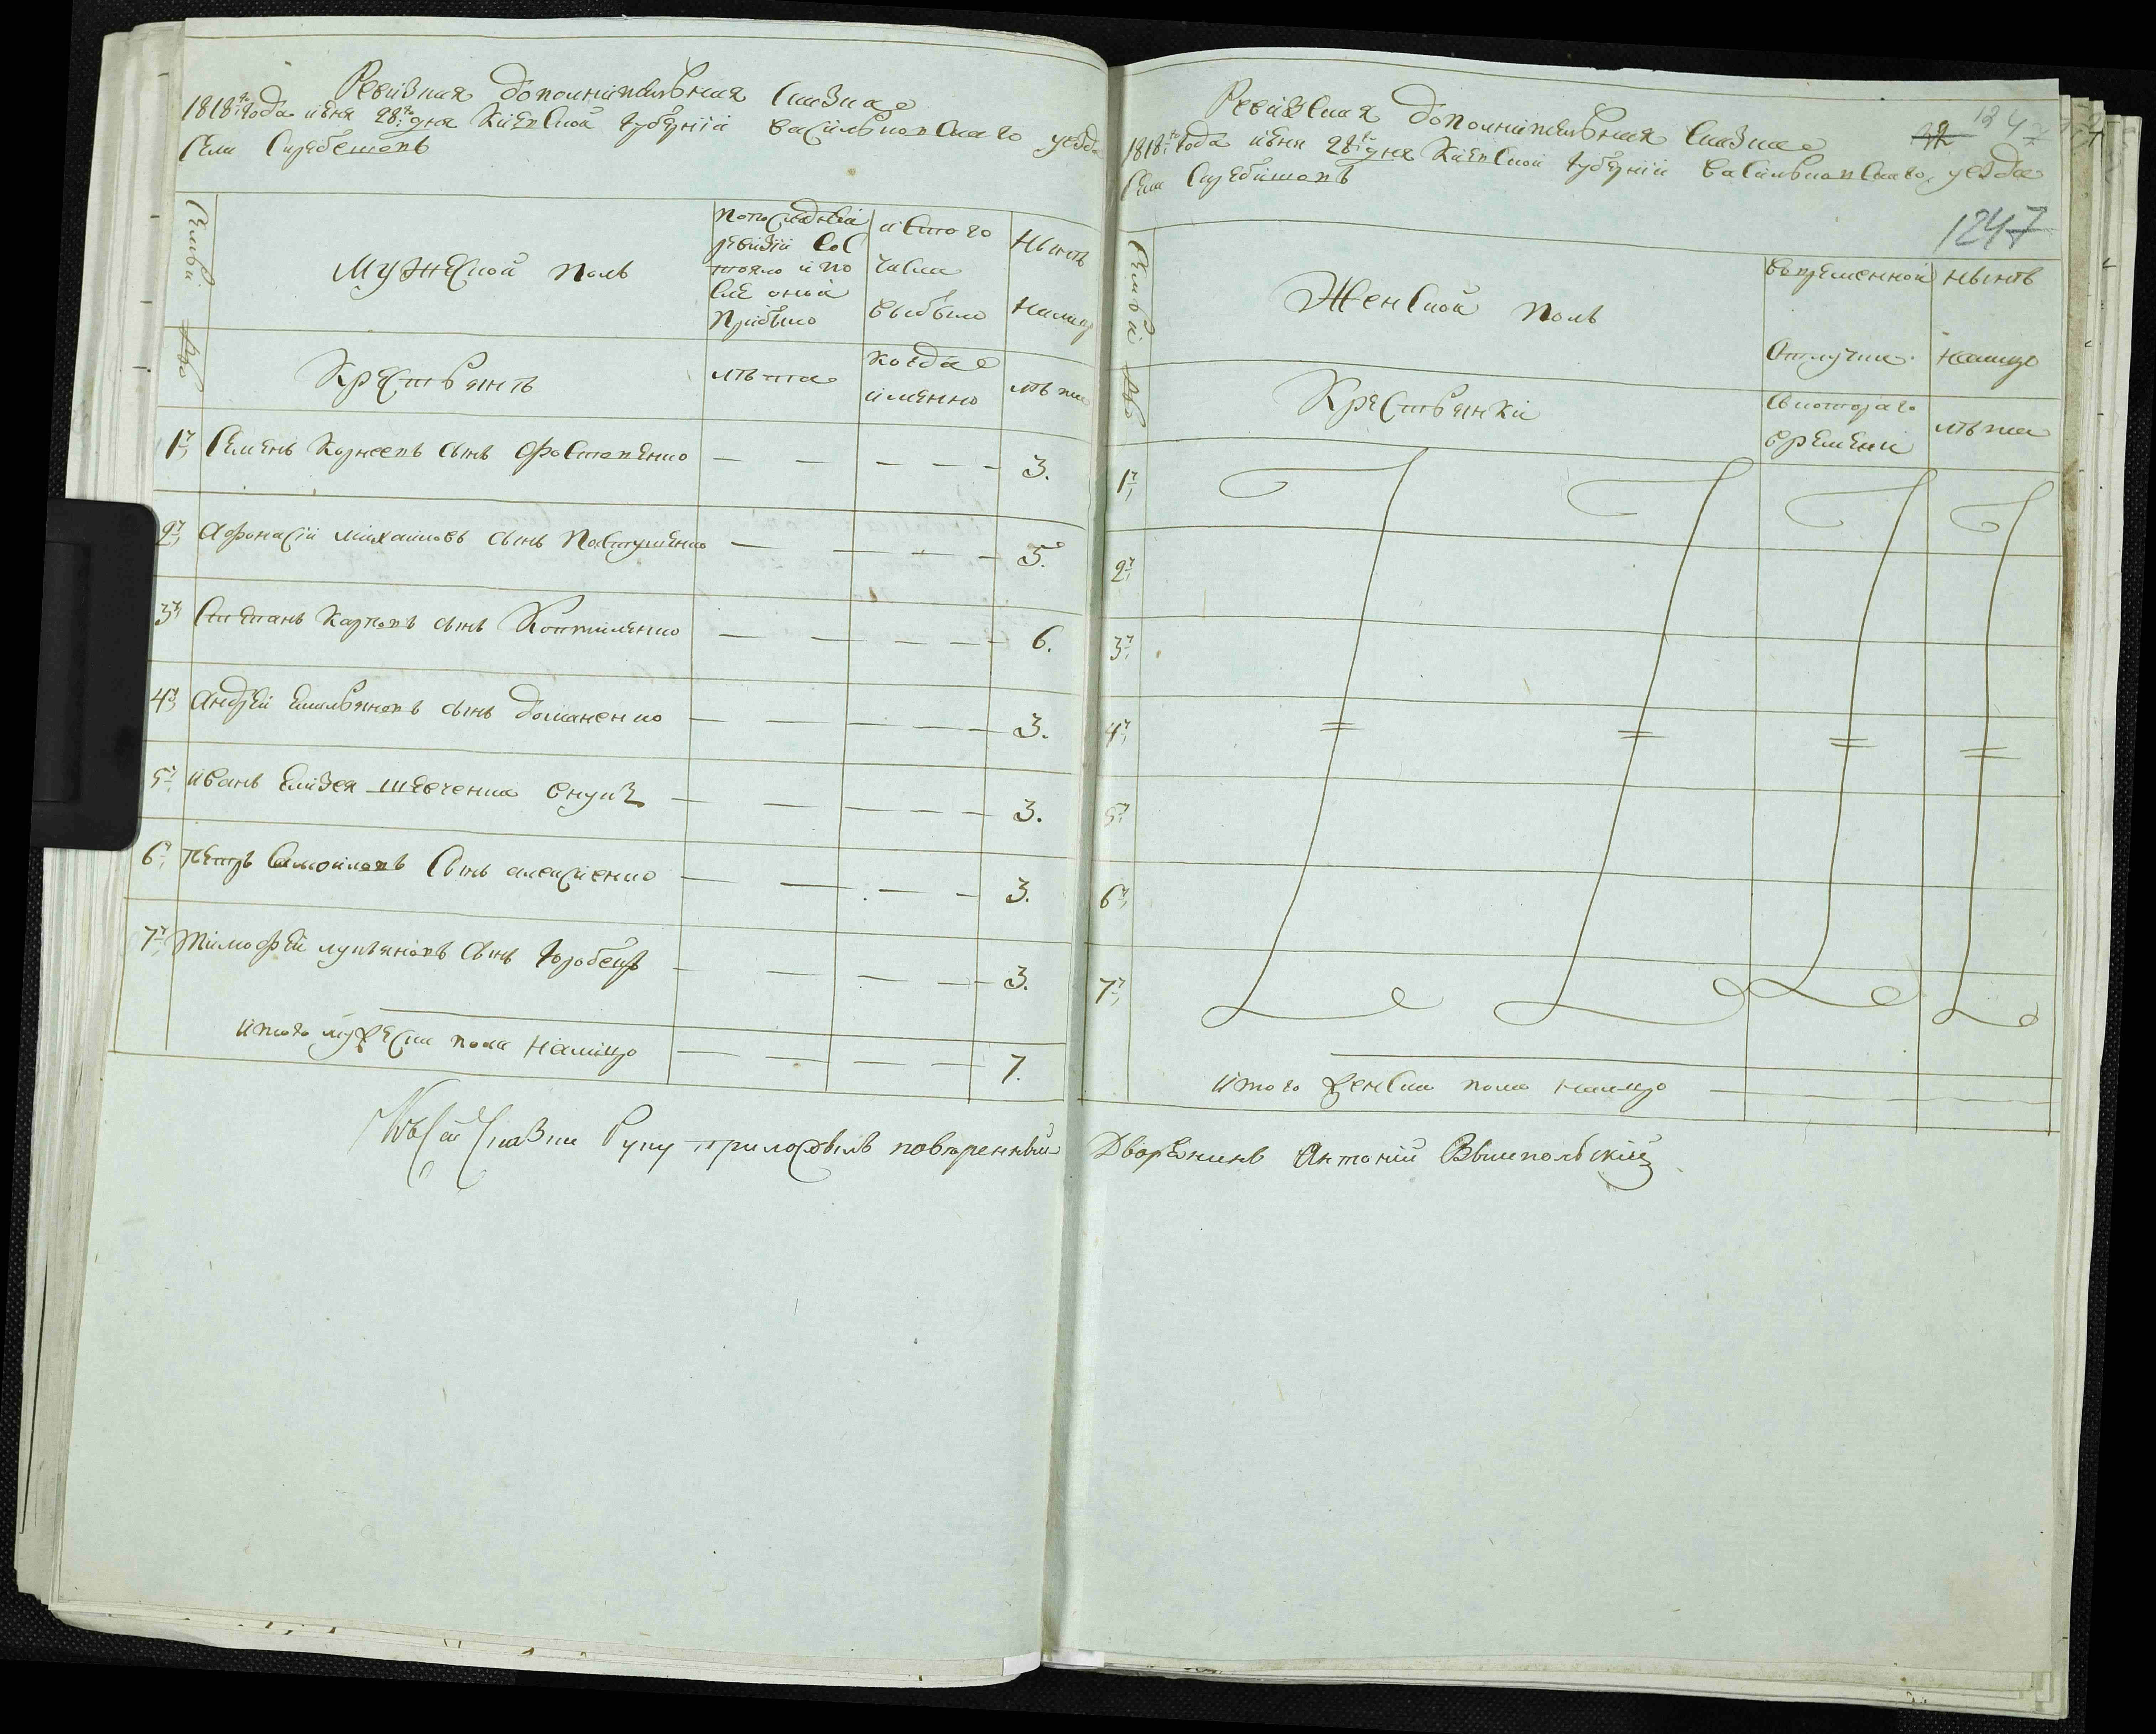 Ревизкая дополнительная сказка
1818го года июня 28го дня Киевской губернии васильковскаго уезда
села Скребешовъ
Семьи №
Мужеской полъ
попоследней
ревизии сос
тояло и по
сле оной
прибыло
изтого
числа
выбыло
Ныне
Налицо
Крестьянъ
лета
когда
имянно
лета
1й Семенъ Корнеевъ сынъ Фостовенко — — — — — 3.
2й Афонасий михаиловъ сынъ Пастушенко — — — — 5.
3й Степанъ Карповъ сынъ Коптиленко — — — — 6.
4й андрей емильяновъ сынъ доманенко — — — — 3.
5й иванъ Елизея шевченка внукъ — — — — 3.
6й Петръ самойловъ сынъ алексиенко — — — — 3.
7й Тимофей лукьяновъ сынъ горобецъ — — — — 3.
итого мужеска пола Налицо — — — — 7.
Ревизская дополнительная сказка
32 1247
1818го года июня 28го дня Киевской губернии васильковскаго уезда
села Скребишовъ
1247
Семьи №
Женской полъ
вовременной
отлучке
ныне
налицо
Крестьянки
скотораго
времени
лета
1й
2й
3й
4й
5й
6й
7й
итого женска пола налицо
Ксей сказки Руку приложилъ поверенный Дворенинъ Антоний Вышпольский